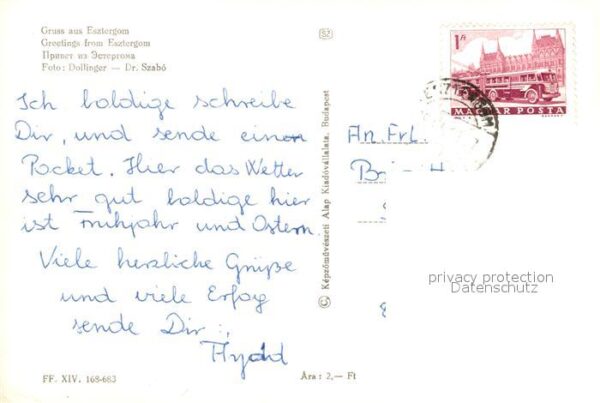 Gruss aus Esztergom
Greetings from Esztergom
Привет из Эстергома
Foto: Dollinger — Dr. Szabó
Ich holdige schreibe
Dir, und sende einen
Pocket. Hier das Wetter
sehr gut holdige hier
ist Frühjahr und Ostern.
Viele herzliche Grüße
und viele Erfog
sende Dir:
FF. XIV. 168-683
Ára: 2,— Ft
© Képzőművészeti Alap Kiadóvállalata, Budapest
1 Ft
MAGYAR POSTA
ESZTERGOM
An. Frl.
privacy protection
Datenschutz